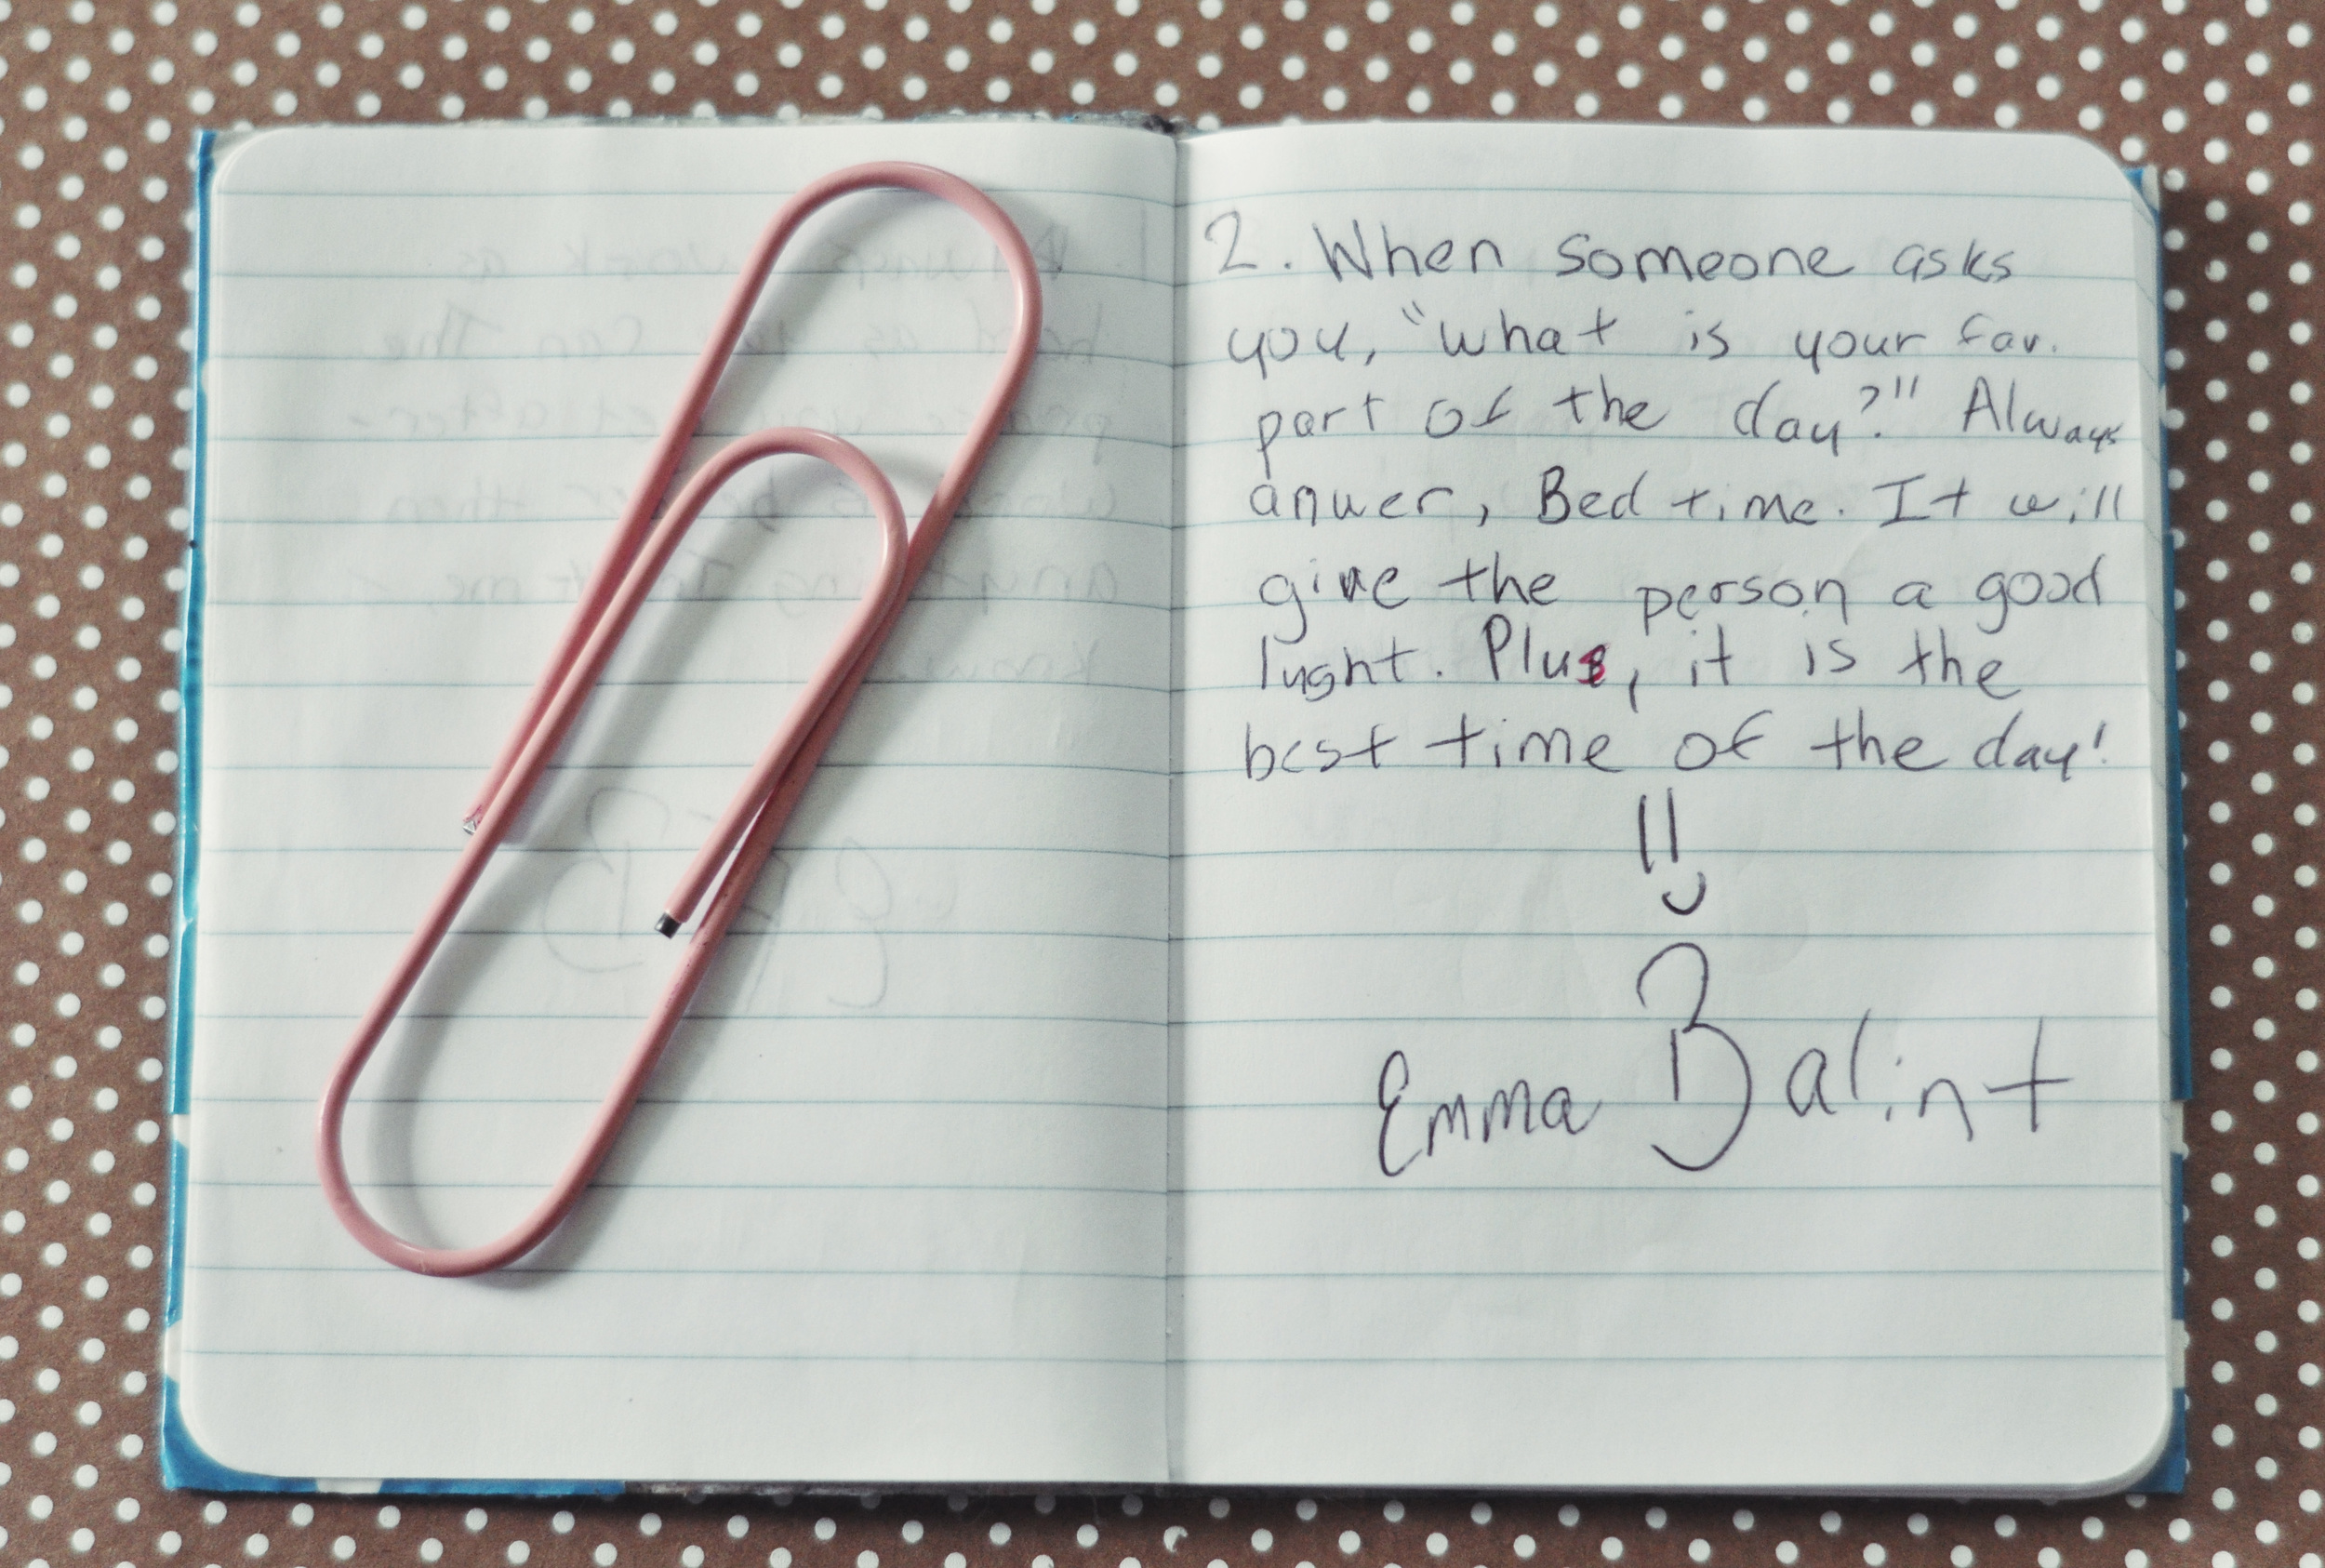 2. When someone asks
you, "what is your fav.
part of the day?" Always
anwer, Bed time. It will
give the person a good
lught. Plus, it is the
best time of the day!
Emma Balint